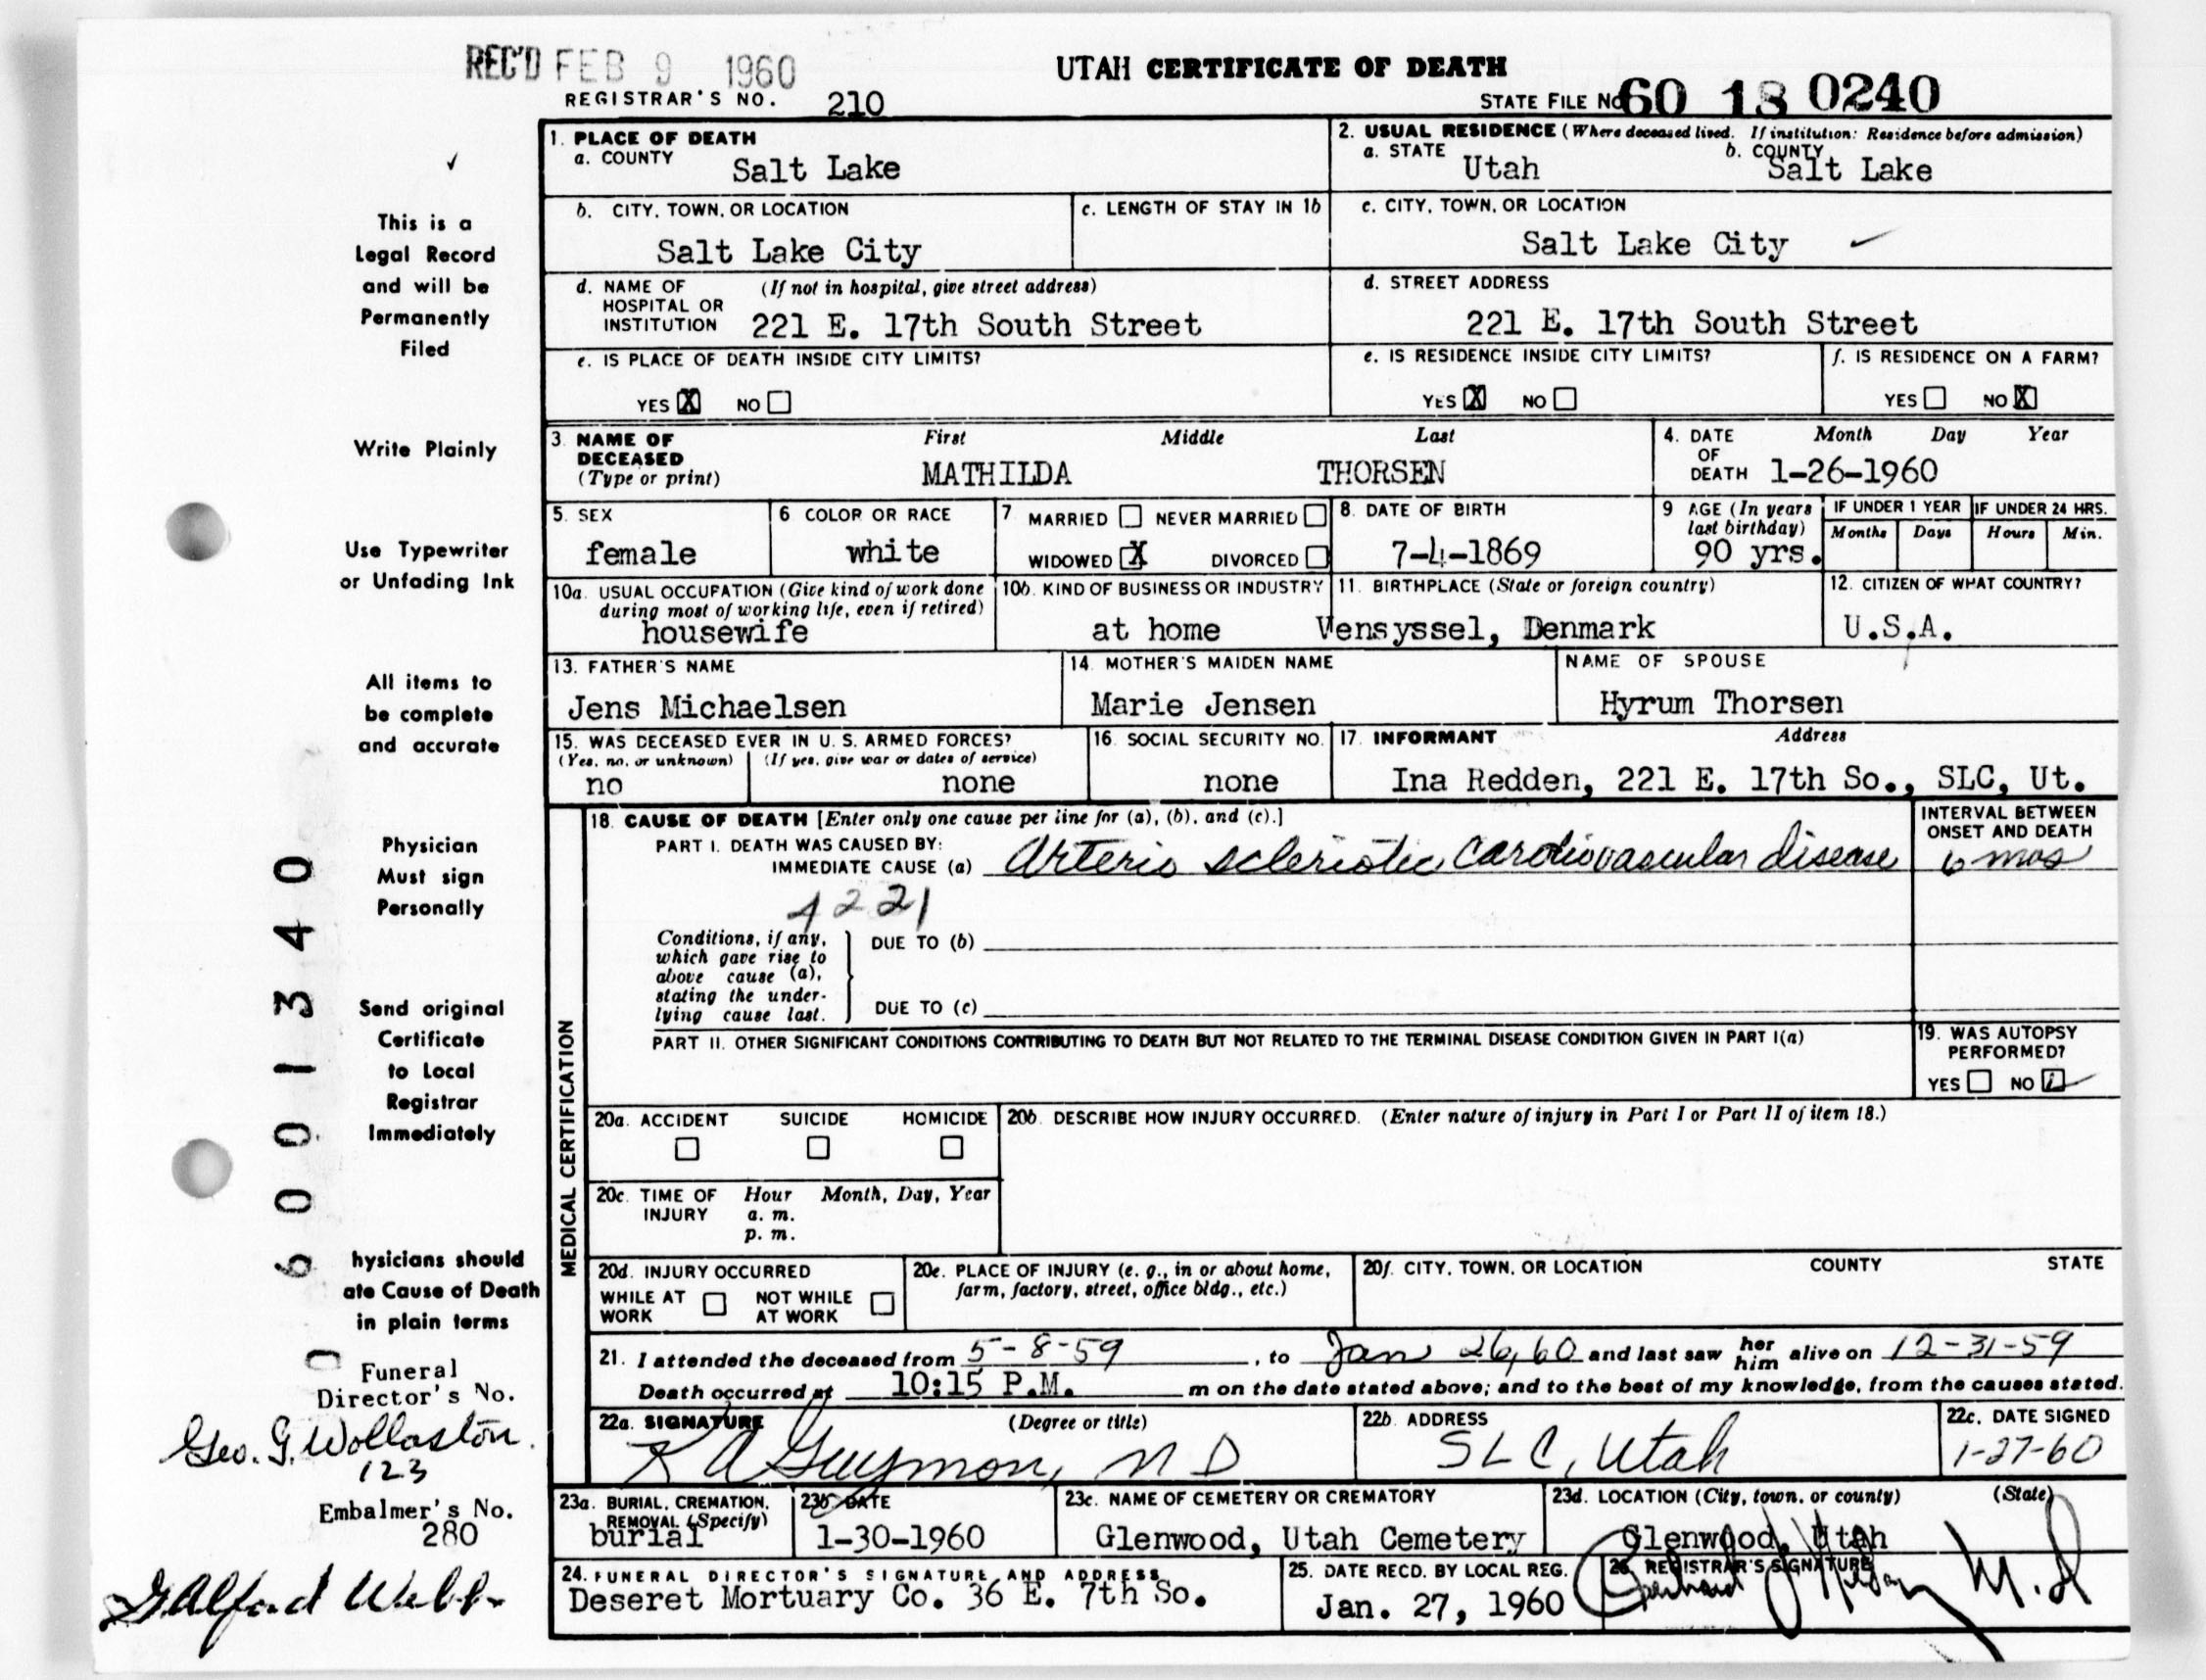 REC'D FEB 9 1960
UTAH CERTIFICATE OF DEATH
REGISTRAR'S NO. 210
STATE FILE NO. 60 18 0240
1. PLACE OF DEATH
a. COUNTY Salt Lake
2. USUAL RESIDENCE (Where deceased lived. If institution: Residence before admission)
a. STATE Utah b. COUNTY Salt Lake
b. CITY, TOWN, OR LOCATION Salt Lake City
c. LENGTH OF STAY IN 1b
c. CITY, TOWN, OR LOCATION Salt Lake City
d. NAME OF HOSPITAL OR INSTITUTION (If not in hospital, give street address) 221 E. 17th South Street
d. STREET ADDRESS 221 E. 17th South Street
e. IS PLACE OF DEATH INSIDE CITY LIMITS?
YES X NO
e. IS RESIDENCE INSIDE CITY LIMITS?
YES X NO
f. IS RESIDENCE ON A FARM?
YES NO X
3. NAME OF DECEASED (Type or print)
First Middle Last
MATHILDA THORSEN
4. DATE OF DEATH Month Day Year
1-26-1960
5. SEX female
6. COLOR OR RACE white
7. MARRIED NEVER MARRIED
WIDOWED X DIVORCED
8. DATE OF BIRTH 7-4-1869
9. AGE (In years last birthday) 90 yrs.
IF UNDER 1 YEAR IF UNDER 24 HRS.
Months Days Hours Min.
10a. USUAL OCCUPATION (Give kind of work done during most of working life, even if retired)
housewife
10b. KIND OF BUSINESS OR INDUSTRY
at home
11. BIRTHPLACE (State or foreign country)
Vensyssel, Denmark
12. CITIZEN OF WHAT COUNTRY?
U.S.A.
13. FATHER'S NAME
Jens Michaelsen
14. MOTHER'S MAIDEN NAME
Marie Jensen
NAME OF SPOUSE
Hyrum Thorsen
15. WAS DECEASED EVER IN U. S. ARMED FORCES?
(Yes, no, or unknown) (If yes, give war or dates of service)
no none
16. SOCIAL SECURITY NO.
none
17. INFORMANT Address
Ina Redden, 221 E. 17th So., SLC, Ut.
MEDICAL CERTIFICATION
18. CAUSE OF DEATH [Enter only one cause per line for (a), (b), and (c).]
INTERVAL BETWEEN ONSET AND DEATH
PART I. DEATH WAS CAUSED BY:
IMMEDIATE CAUSE (a) Arterio scleriotic cardiovascular disease 6 mos
4221
Conditions, if any, which gave rise to above cause (a), stating the underlying cause last.
DUE TO (b)
DUE TO (c)
PART II. OTHER SIGNIFICANT CONDITIONS CONTRIBUTING TO DEATH BUT NOT RELATED TO THE TERMINAL DISEASE CONDITION GIVEN IN PART I(a)
19. WAS AUTOPSY PERFORMED?
YES NO
20a. ACCIDENT SUICIDE HOMICIDE
20b. DESCRIBE HOW INJURY OCCURRED. (Enter nature of injury in Part I or Part II of item 18.)
20c. TIME OF INJURY Hour Month, Day, Year
a. m.
p. m.
20d. INJURY OCCURRED
WHILE AT WORK NOT WHILE AT WORK
20e. PLACE OF INJURY (e. g., in or about home, farm, factory, street, office bldg., etc.)
20f. CITY, TOWN, OR LOCATION COUNTY STATE
21. I attended the deceased from 5-8-59, to Jan 26, 60 and last saw her him alive on 12-31-59
Death occurred at 10:15 P.M. m on the date stated above; and to the best of my knowledge, from the causes stated.
22a. SIGNATURE (Degree or title)
K A Guymon, M D
22b. ADDRESS
SLC, Utah
22c. DATE SIGNED
1-27-60
23a. BURIAL, CREMATION, REMOVAL (Specify)
burial
23b. DATE
1-30-1960
23c. NAME OF CEMETERY OR CREMATORY
Glenwood, Utah Cemetery
23d. LOCATION (City, town, or county) (State)
Glenwood, Utah
24. FUNERAL DIRECTOR'S SIGNATURE AND ADDRESS
Deseret Mortuary Co. 36 E. 7th So.
25. DATE RECD. BY LOCAL REG.
Jan. 27, 1960
26. REGISTRAR'S SIGNATURE
M.D
This is a
Legal Record
and will be
Permanently
Filed
Write Plainly
Use Typewriter
or Unfading Ink
All items to
be complete
and accurate
Physician
Must sign
Personally
Send original
Certificate
to Local
Registrar
Immediately
hysicians should
ate Cause of Death
in plain terms
6001340
Funeral
Director's No.
Geo. G. Wollaston
123
Embalmer's No.
280
G. Alford Webb